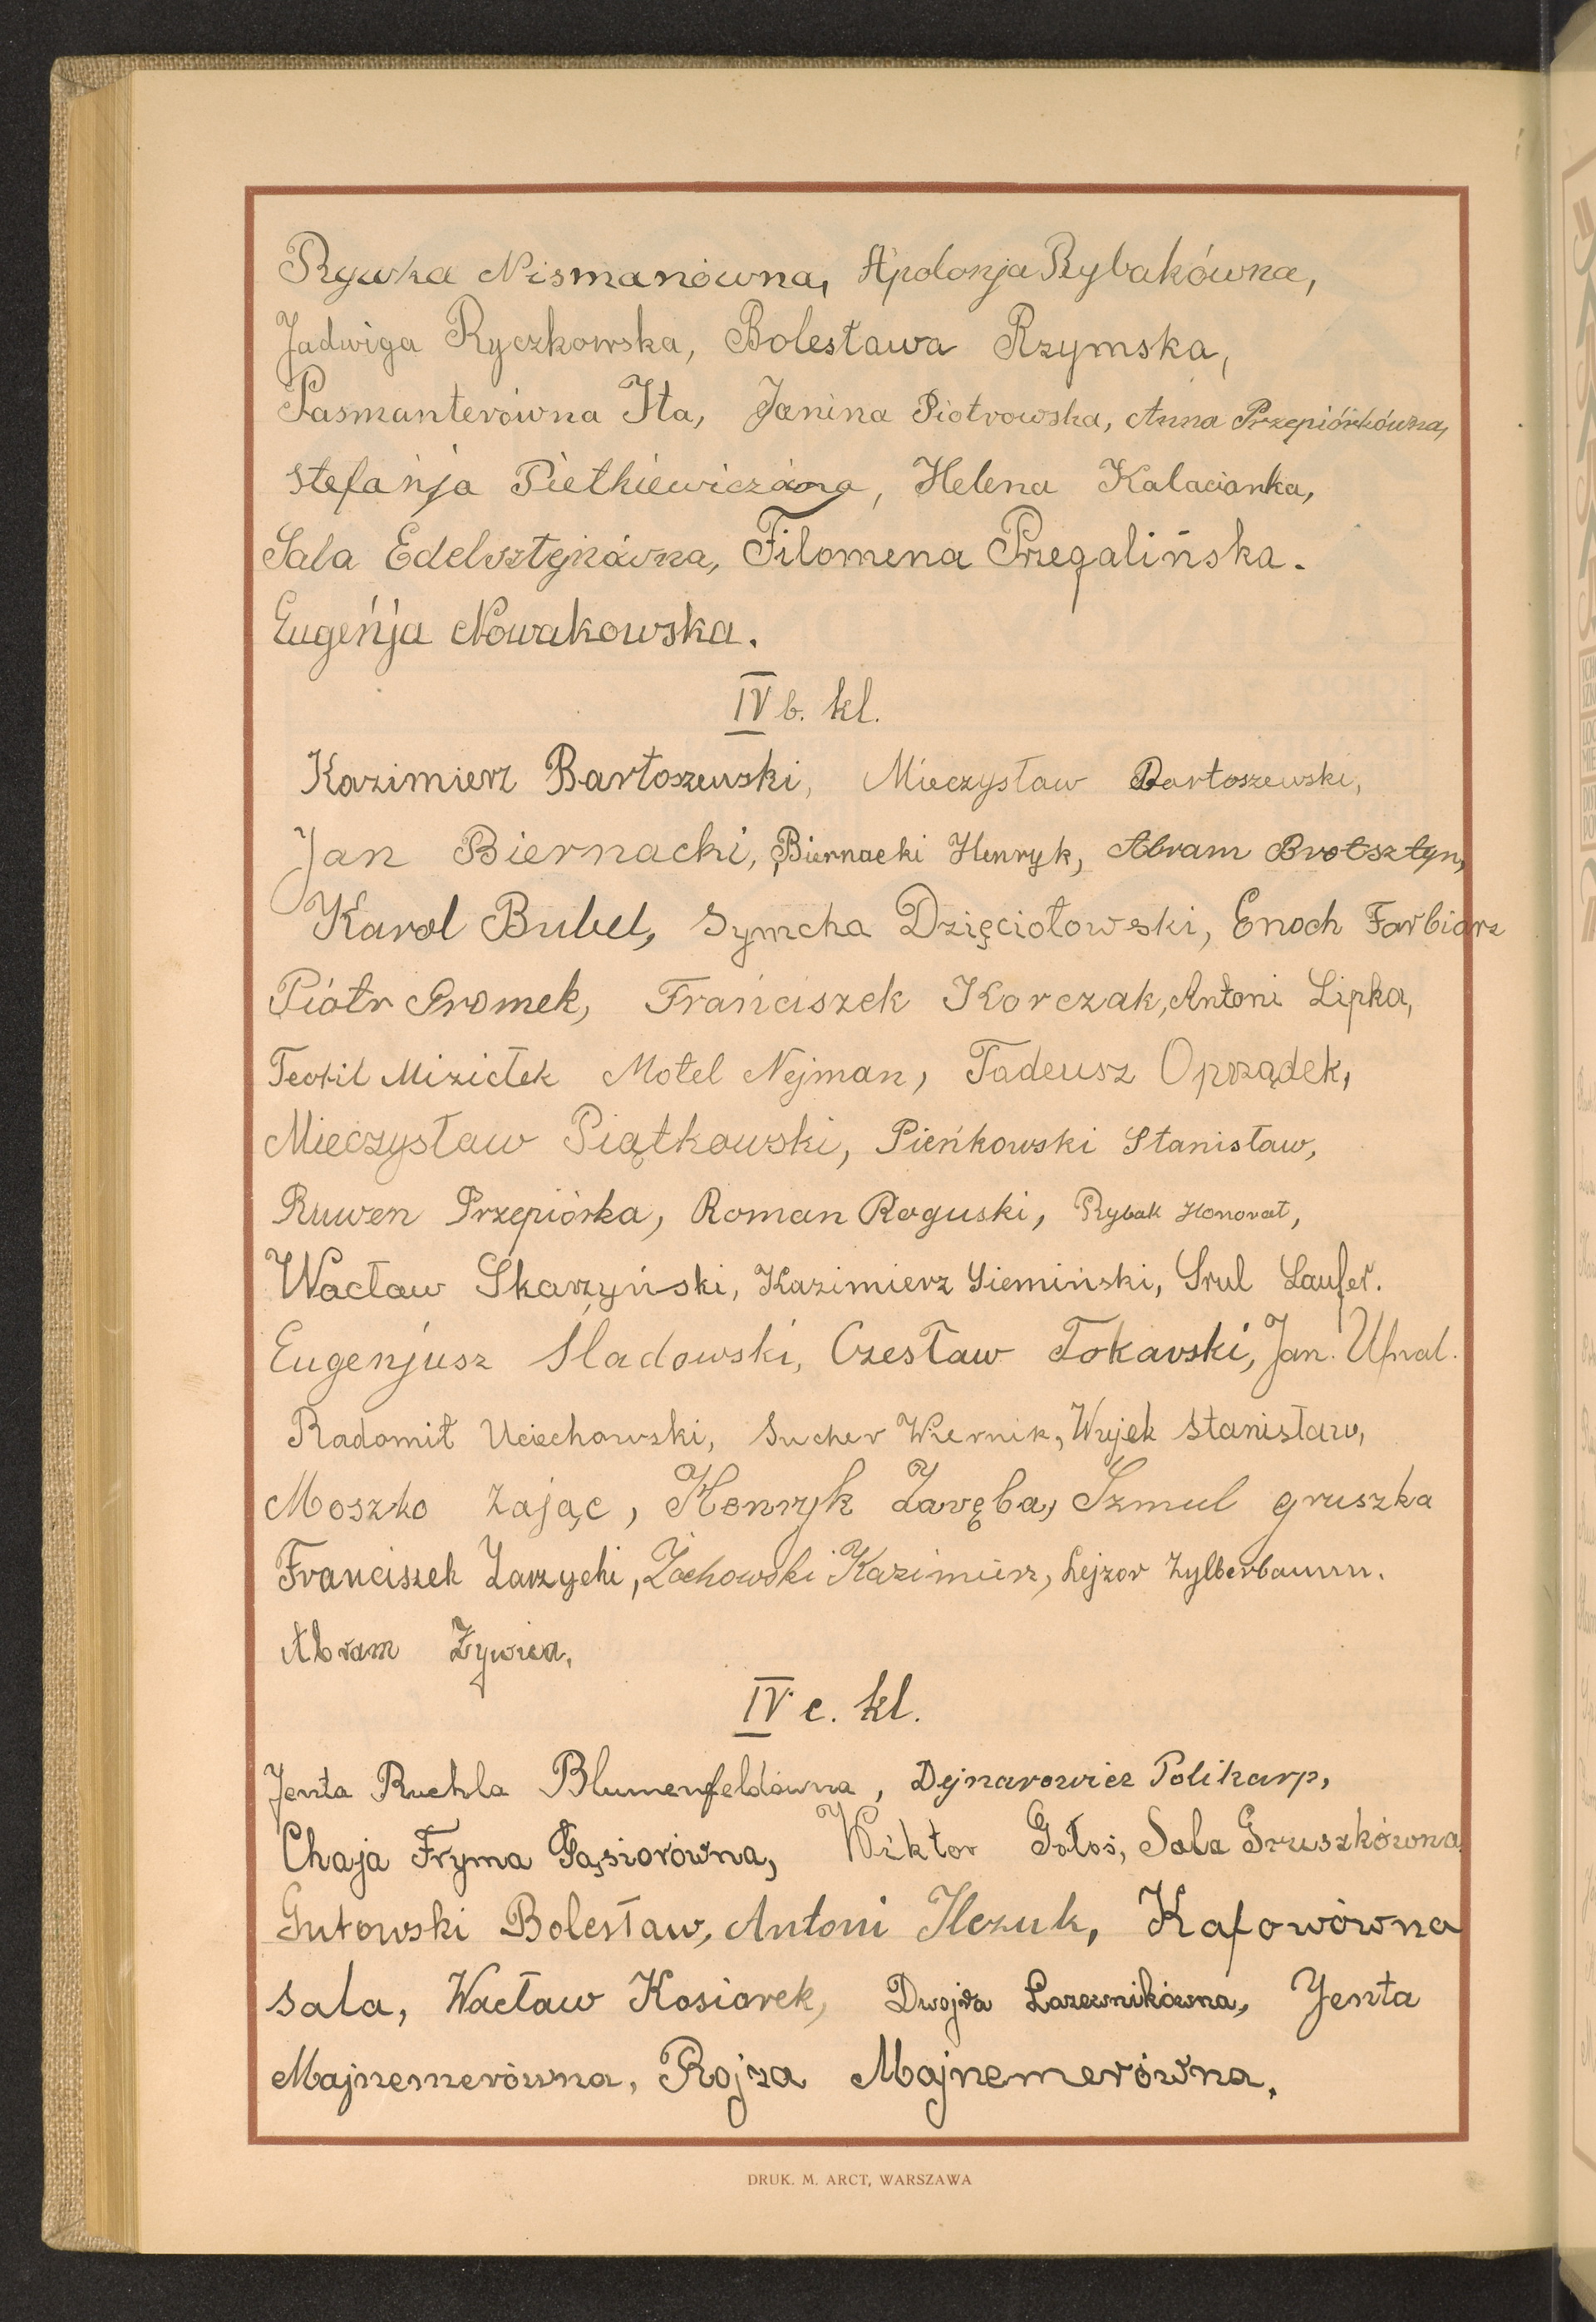 Rywka Nismanówna, Apolonja Rybakówna,
Jadwiga Ryczkowska, Bolesława Rzymska,
Pasmanterówna Ita, Janina Piotrowska, Anna Przepiórkówna,
Stefanja Pietkiewiczówna, Helena Kalacianka,
Sala Edelsztejnówna, Filomena Przegalińska.
Eugenja Nowakowska.
IV b. kl.
Kazimierz Bartoszewski, Mieczysław Bartoszewski,
Jan Biernacki, Biernacki Henryk, Abram Brotsztyn,
Karol Bubel, Symcha Dzięciołowski, Enoch Farbiarz
Piotr Gromek, Franciszek Korczak, Antoni Lipka,
Teofil Miziołek Motel Nejman, Tadeusz Oprządek,
Mieczysław Piątkowski, Pieńkowski Stanisław,
Ruwen Przepiórka, Roman Roguski, Rybak Honorat,
Wacław Skarzyński, Kazimierz Siemiński, Srul Laufer.
Eugenjusz Śladowski, Czesław Tokarski, Jan. Ufnal.
Radomił Uciechowski, Sucher Wiernik, Wujek Stanisław,
Moszko Zając, Henryk Zaręba, Szmul gruszka
Franciszek Zarzycki, Żochowski Kazimierz, Lejzor Zylberbaum.
Abram Żywica.
IV c. kl.
Jenta Ruchla Blumenfeldówna, Dejnarowicz Polikarp,
Chaja Fryma Gąsiorówna, Wiktor Gołoś, Sala Gruszkówna
Gutowski Bolesław, Antoni Ilczuk, Kafowówna
Sala, Wacław Kosiorek, Dwojra Łazewnikówna, Jenta
Majnemerówna, Rojza Majnemerówna.
DRUK. M. ARCT, WARSZAWA